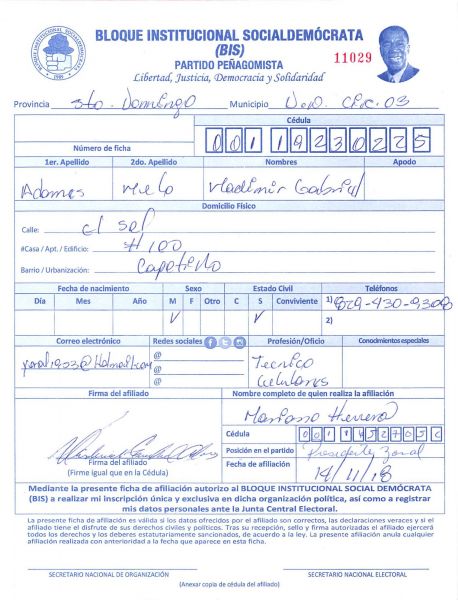 BLOQUE INSTITUCIONAL SOCIALDEMÓCRATA
(BIS)
PARTIDO PEÑAGOMISTA
Libertad, Justicia, Democracia y Solidaridad
11029
BLOQUE INSTITUCIONAL SOCIALDEMOCRATA
Provincia Sto. Domingo Municipio
03
Cédula
Número de ficha
00119230225
1er. Apellido 2do. Apellido Nombres Apodo
Adames Melo Vladimir Gabriel
Domicilio Físico
Calle: el sol
#Casa / Apt. / Edificio: # 100
Barrio / Urbanización: Capotillo
Fecha de nacimiento Sexo Estado Civil Teléfonos
Día Mes Año M F Otro C S Conviviente 1) 829-430-9308
V V 2)
Correo electrónico Redes sociales Profesión/Oficio Conocimientos especiales
@ Tecnico
@ Celulares
@
Firma del afiliado Nombre completo de quien realiza la afiliación
Mariano Herrera
Cédula
Posición en el partido Presidente Zonal
Firma del afiliado Fecha de afiliación 14/11/18
(Firme igual que en la Cédula)
Mediante la presente ficha de afiliación autorizo al BLOQUE INSTITUCIONAL SOCIAL DEMÓCRATA
(BIS) a realizar mi inscripción única y exclusiva en dicha organización política, así como a registrar
mis datos personales ante la Junta Central Electoral.
La presente ficha de afiliación es válida si los datos ofrecidos por el afiliado son correctos, las declaraciones veraces y si el
afiliado tiene el disfrute de sus derechos civiles y políticos. Tras su recepción, sello y firma autorizadas el afiliado ejercerá
todos los derechos y los deberes estatutariamente sancionados, de acuerdo a la ley. La presente afiliación anula cualquier
afiliación realizada con anterioridad a la fecha que aparece en esta ficha.
SECRETARIO NACIONAL DE ORGANIZACIÓN SECRETARIO NACIONAL ELECTORAL
(Anexar copia de cédula del afiliado)